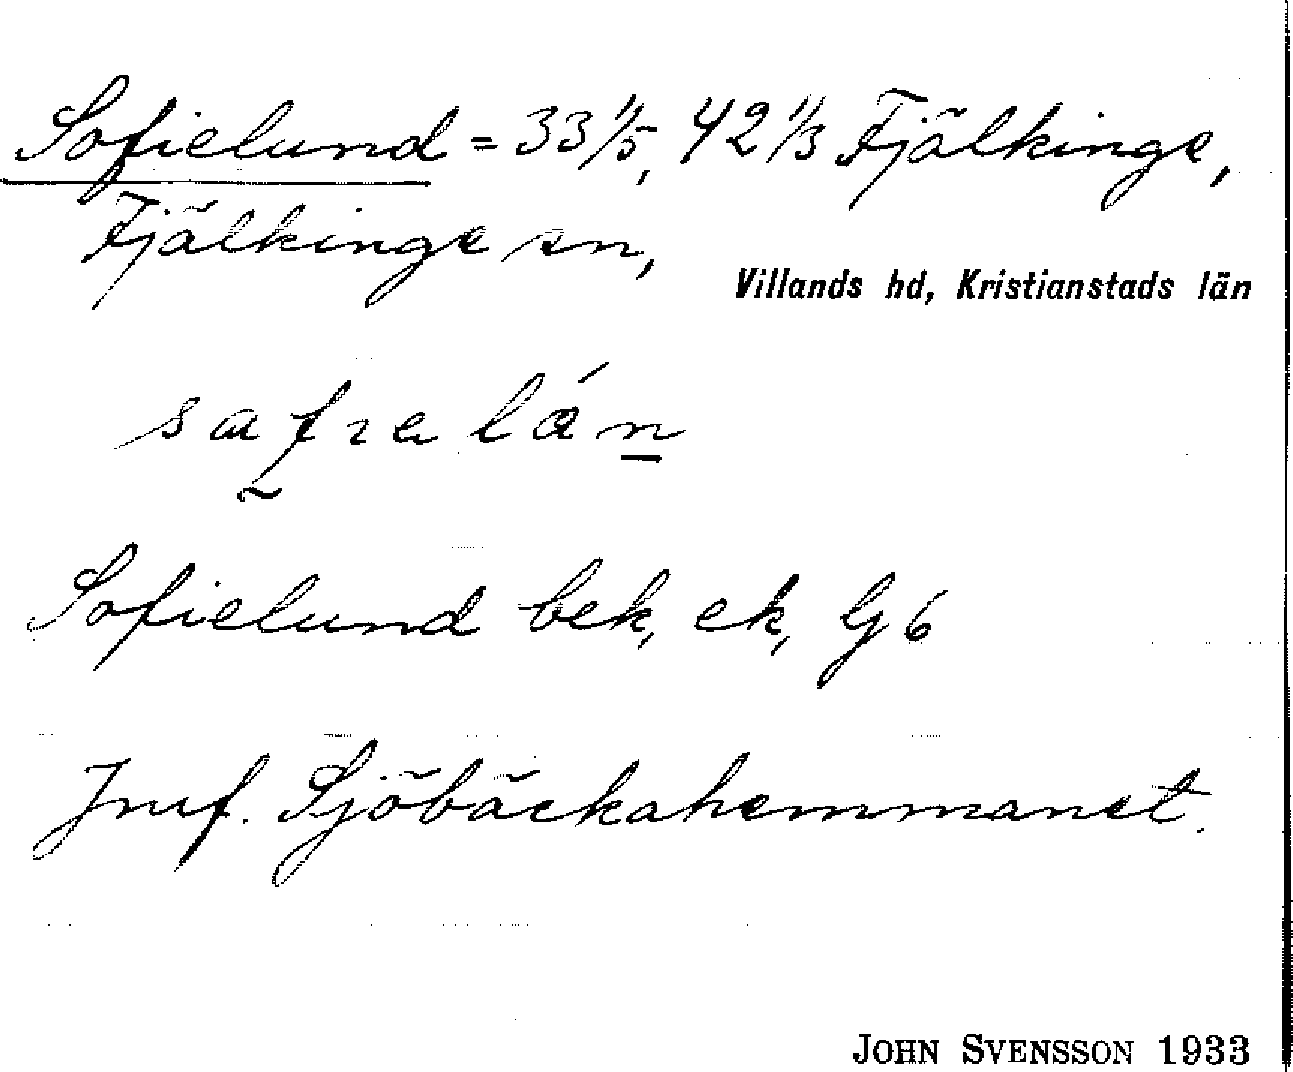 Sofielund = 33 1/5, 42 1/3 Fjälkinge,
Fjälkinge sn,
Villands hd, Kristianstads län
Sofielund bek, ek, Gj 6
Jmf. Sjöbäckahemmanet.
JOHN SVENSSON 1933